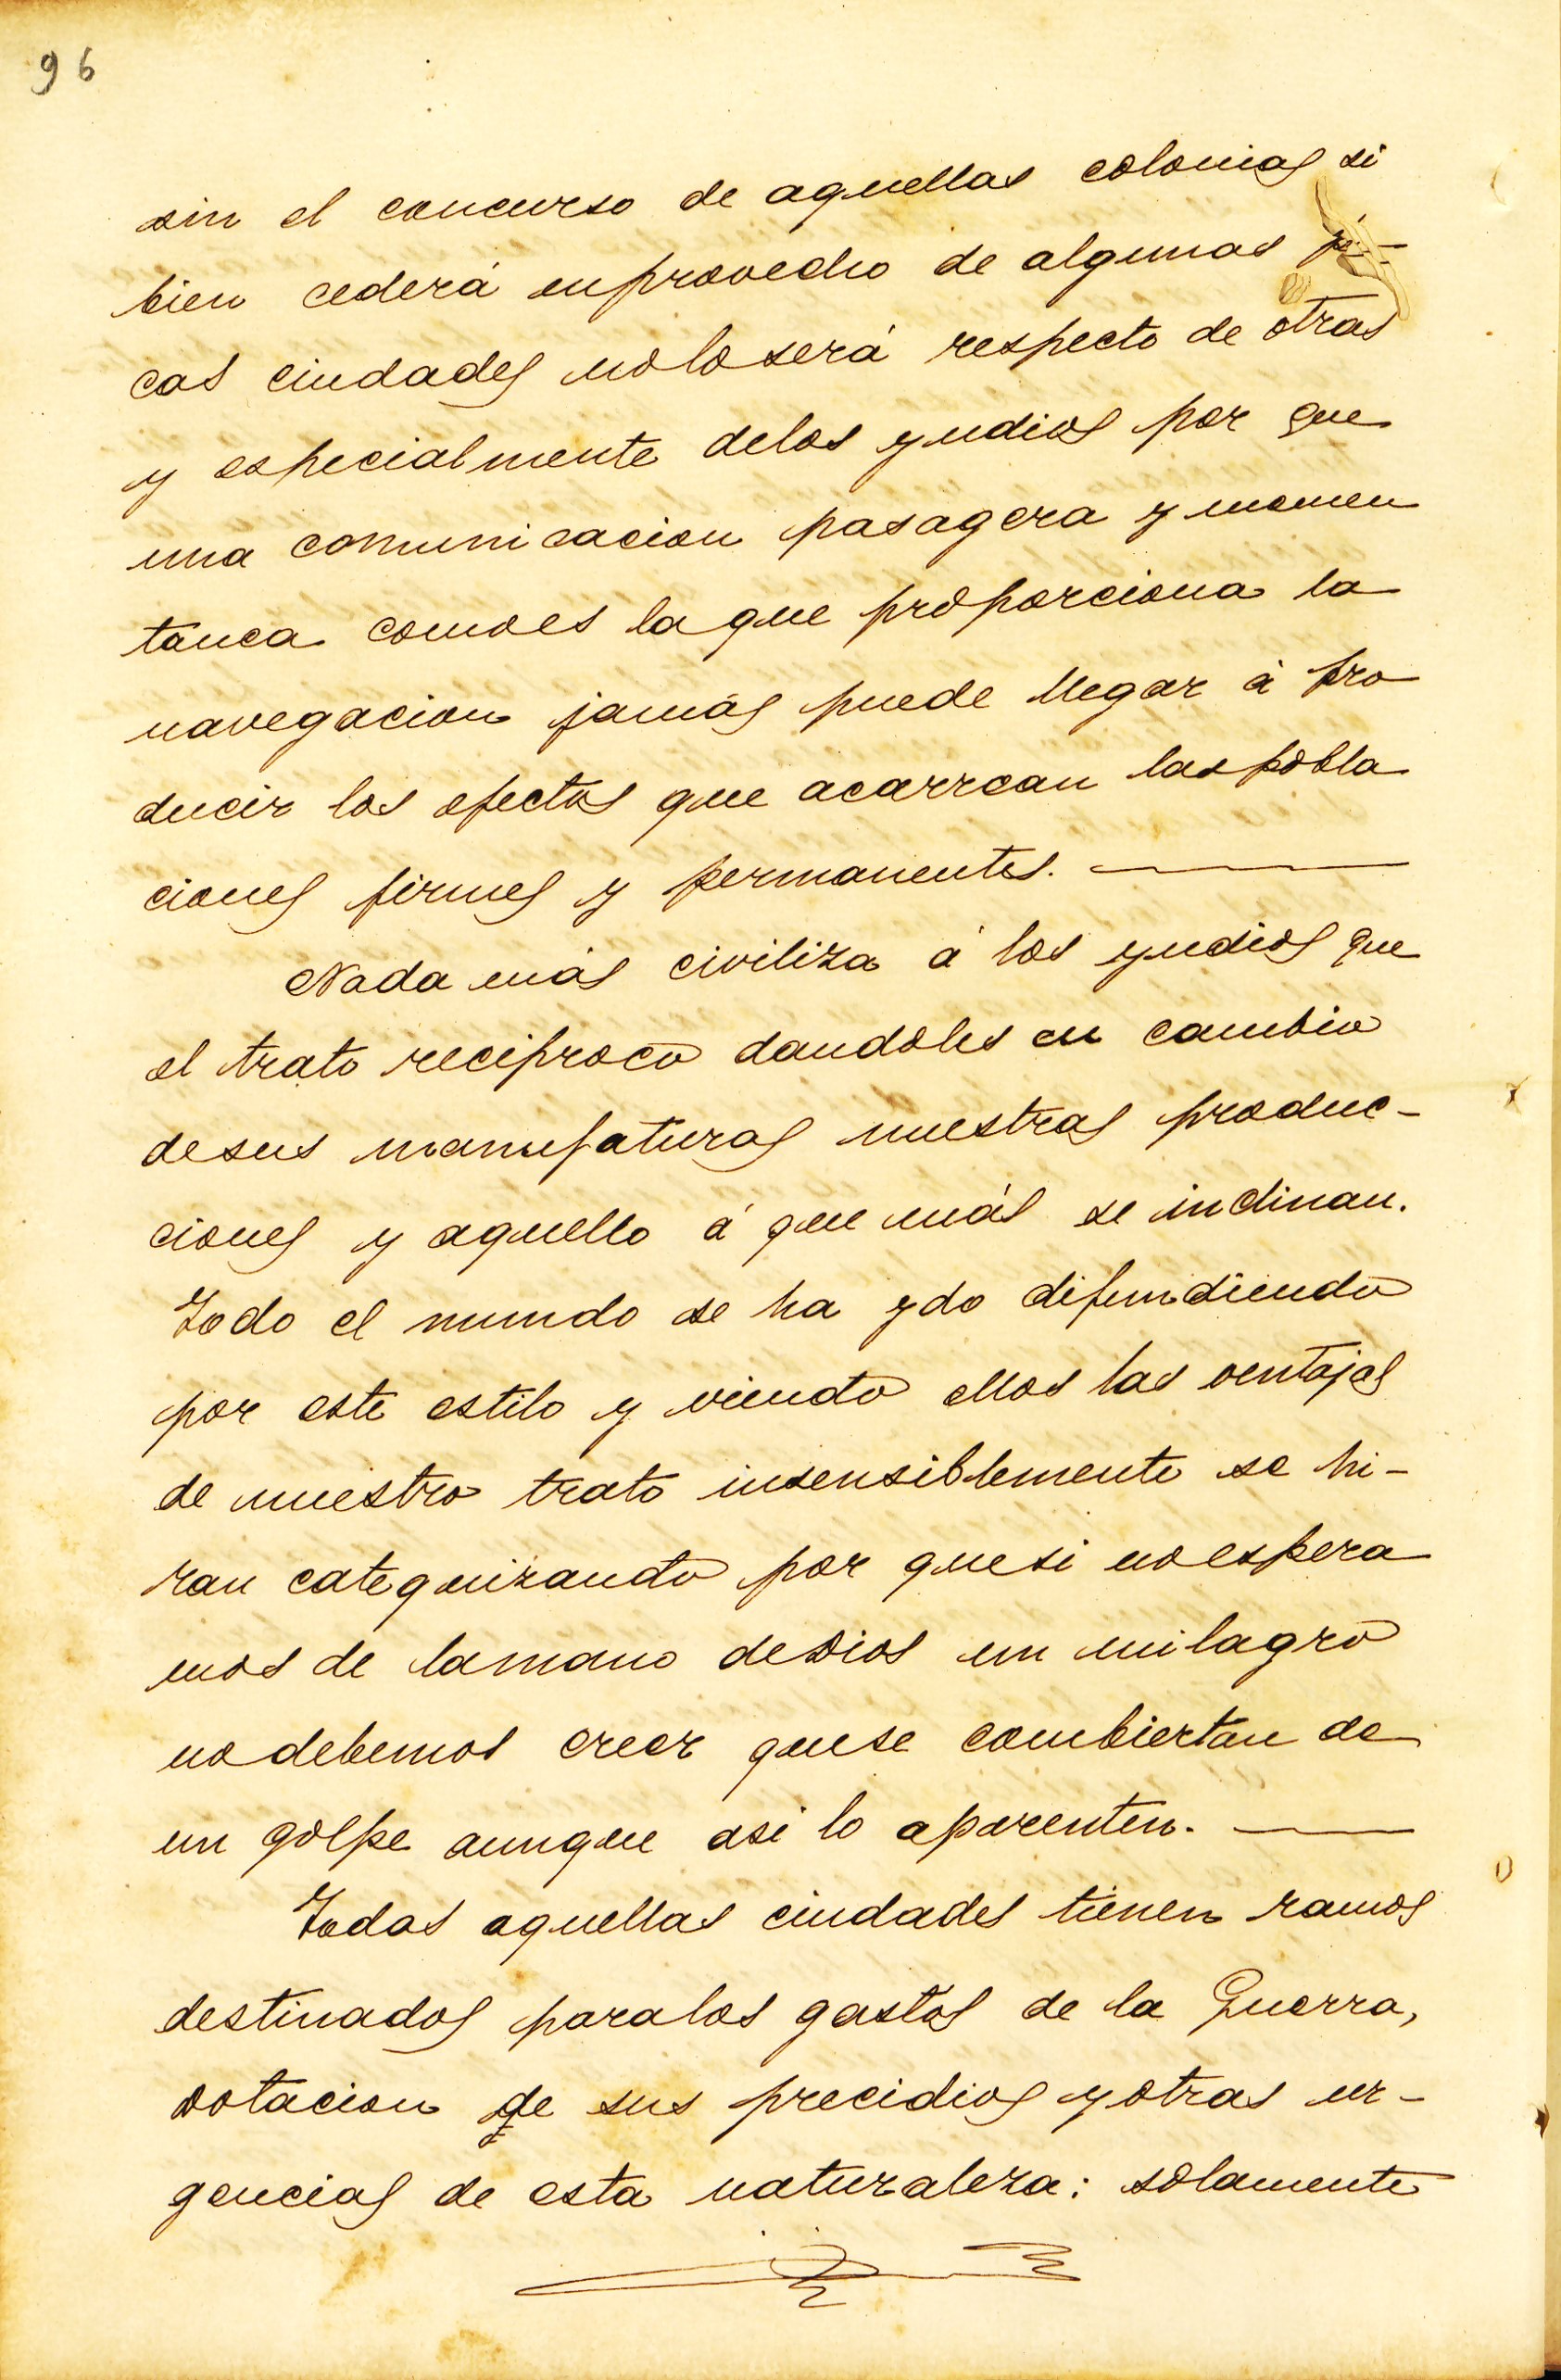 96
sin el concurso de aquellas colonias si
bien cederá enprovecho de algunas
cas ciudades noloserá respecto de otras
y especialmente delos yndios por que
una comunicacion pasagera y momen
tanea comoes laque proporciona la
navegacion jamás puede llegar á pro
ducir los efectos que acarrean laspobla
ciones firmes y permanentes.
Nada más civiliza á los yndios que
el trato reciproco dandoles en cambio
desus manufaturas nuestras produc-
ciones y aquello á que más se inclinan.
Todo el mundo se ha ydo difundiendo
por este estilo y viendo ellos las ventajas
de nuestro trato insensiblemente se hi-
ran catequizando por quesi noespera
mos de lamano deDios un milagro
nodebemos creer quese combiertan de
un golpe aunque asi lo aparenten.
Todas aquellas ciudades tienen ramos
destinados paralos gastos de la Guerra,
dotacion de sus precidios yotras ur-
gencias de esta naturaleza: solamente